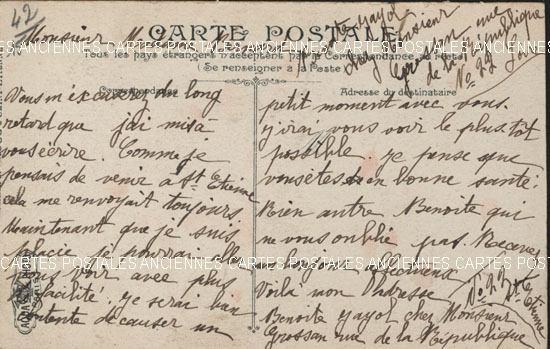 42
CARTE POSTALE
Monsieur
Tous les pays étrangers n'acceptent pas la Correspondance au Recto
(Se renseigner à la Poste)
Correspondance
Vous m'excuserez du long
retard que j'ai mis à
vous écrire. Comme je
pensais de venir à St Etienne
cela me renvoyait toujours.
Maintenant que je suis
placée je pourrai
avec plus
facilité. je serai bien
contente de causer un
Adresse du destinataire
petit moment avec vous.
j'irai vous voir le plus tôt
possible je pense que
vous êtes bien en bonne santé.
Rien autre Benoite qui
ne vous oublie pas. Recevez
Voila mon Adresse
Benoite yayol chez Monsieur
Grossan rue de la République
No 22 St Etienne
yayol
Monsieur
rue
de la République
No 22
CARTES POSTALES ANCIENNES